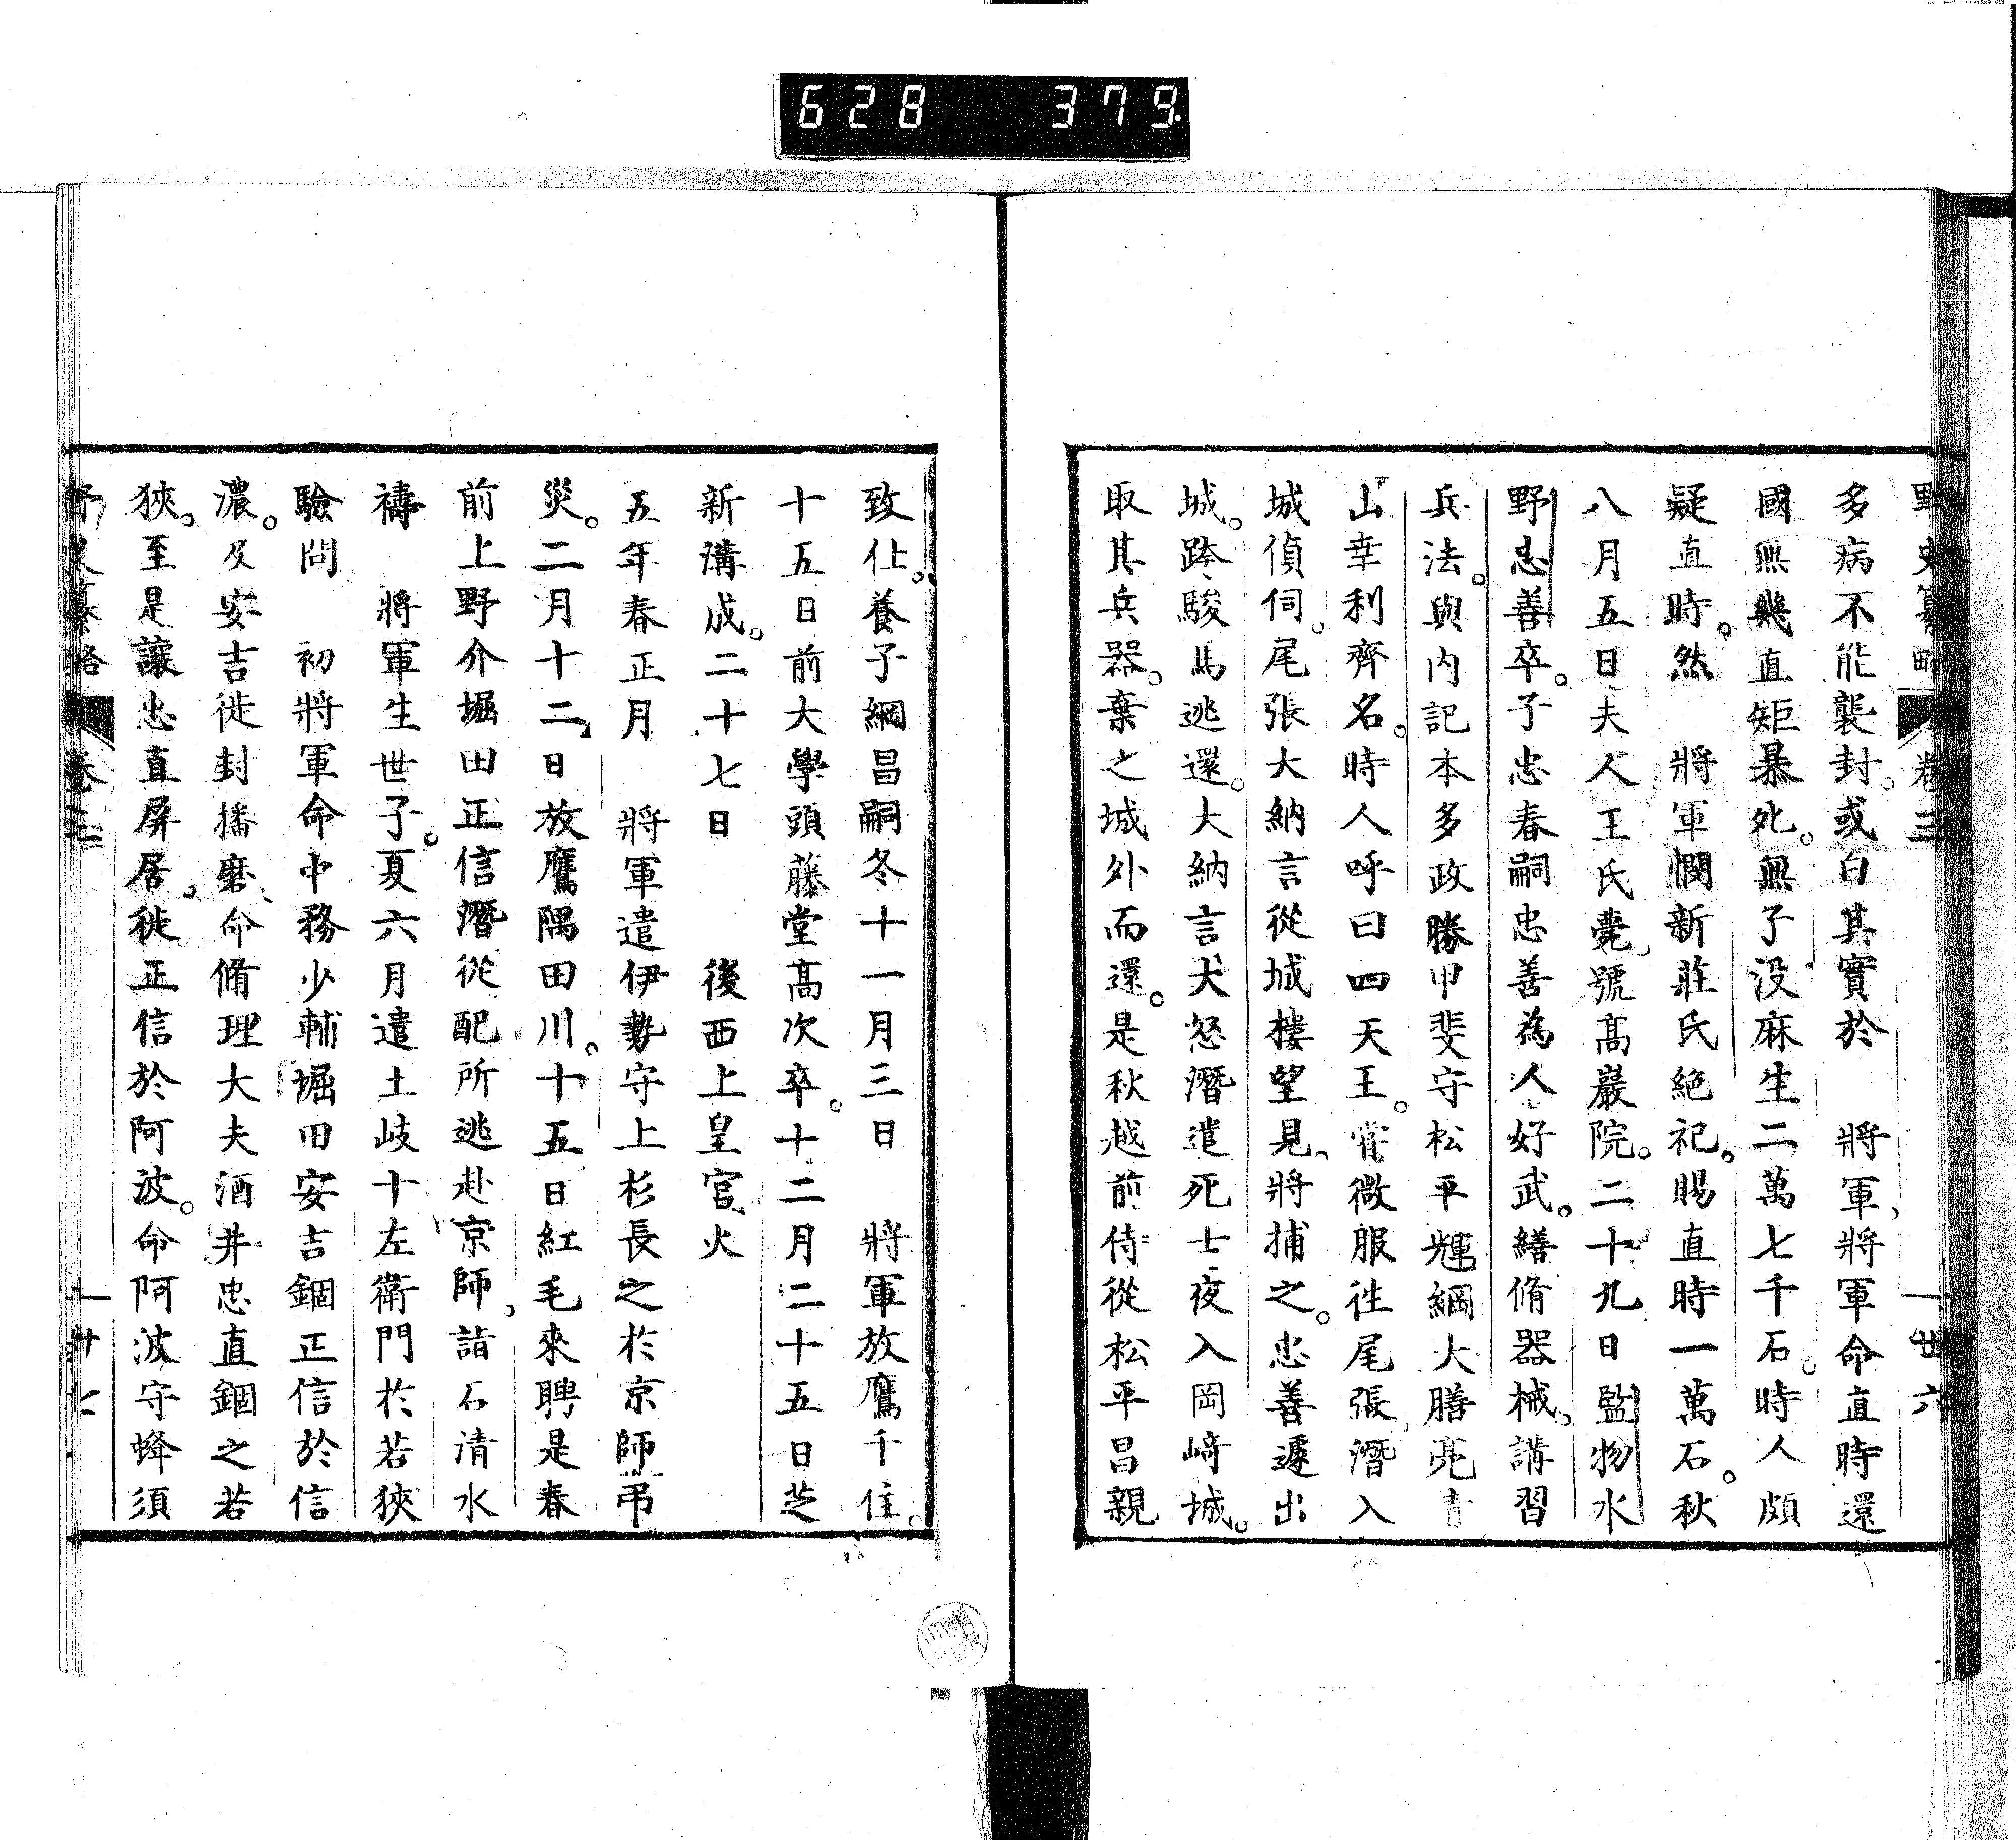 628 379
野史纂略 卷三 卅六
多病不能襲封。或白其實於 將軍、將軍命直時還
國無幾直矩暴死。無子。没麻生二萬七千石。時人頗
疑直時。然 將軍憫新莊氏絶祀。賜直時一萬石。秋
八月五日夫人王氏薨、號高巖院。二十九日監物水
野忠善卒。子忠春嗣忠善為人好武。繕脩器械。講習
兵法。與内記本多政勝甲斐守松平輝綱大膳亮青
山幸利齊名。時人呼曰四天王。甞微服徃尾張、潛入
城偵伺。尾張大納言從城樓望見、將捕之。忠善遽出
城。跨駿馬逃還。大納言大怒潛遣死士夜入岡崎城。
取其兵器。棄之城外而還。是秋越前侍從松平昌親
致仕。養子綱昌嗣冬十一月三日 將軍放鷹千住。
十五日前大學頭藤堂高次卒。十二月二十五日芝
新溝成。二十七日 後西上皇宮火
五年春正月 將軍遣伊勢守上杉長之於京師弔
災。二月十二日放鷹隅田川。十五日紅毛來聘是春
前上野介堀田正信潛從配所逃赴京師、詣石清水
禱 將軍生世子。夏六月遣土岐十左衛門於若狹
驗問 初將軍命中務少輔堀田安吉錮正信於信
濃。及安吉徙封播磨、命脩理大夫酒井忠直錮之若
狹。至是讓忠直屏居。徙正信於阿波。命阿波守蜂須
野史纂略 卷三 卅七